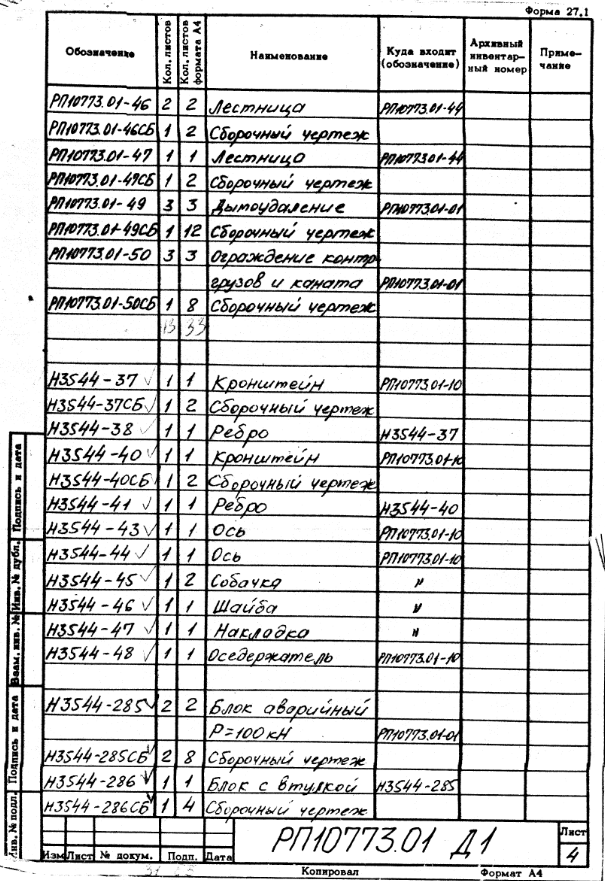 Форма 27.1
Обозначение Кол. листов Кол. листов формата А4 Наименование Куда входит (обозначение) Архивный инвентарный номер Примечание
РП10773.01-46 2 2 Лестница РП10773.01-44
РП10773.01-46СБ 1 2 Сборочный чертеж
РП10773.01-47 1 1 Лестница РП10773.01-44
РП10773.01-47СБ 1 2 Сборочный чертеж
РП10773.01-49 3 3 Дымоудаление РП10773.01-01
РП10773.01-49СБ 1 12 Сборочный чертеж
РП10773.01-50 3 3 Ограждение контр
грузов и каната РП10773.01-01
РП10773.01-50СБ 1 8 Сборочный чертеж
13 33
Н3544-37 √ 1 1 Кронштейн РП10773.01-10
Н3544-37СБ √ 1 2 Сборочный чертеж
Н3544-38 √ 1 1 Ребро Н3544-37
Н3544-40 √ 1 1 Кронштейн РП10773.01-10
Н3544-40СБ √ 1 2 Сборочный чертеж
Н3544-41 √ 1 1 Ребро Н3544-40
Н3544-43 √ 1 1 Ось РП10773.01-10
Н3544-44 √ 1 1 Ось РП10773.01-10
Н3544-45 √ 1 2 Собачка "
Н3544-46 √ 1 1 Шайба "
Н3544-47 √ 1 1 Накладка "
Н3544-48 √ 1 1 Оседержатель РП10773.01-10
Н3544-285 √ 2 2 Блок аварийный
Р=100кН РП10773.01-01
Н3544-285СБ √ 2 8 Сборочный чертеж
Н3544-286 √ 1 1 Блок с втулкой Н3544-285
Н3544-286СБ √ 1 4 Сборочный чертеж
Инв. № подл. Подпись и дата Взам. инв. № Инв. № дубл. Подпись и дата
РП10773.01 Д1
Лист
4
Изм Лист № докум. Подп. Дата
Копировал Формат А4